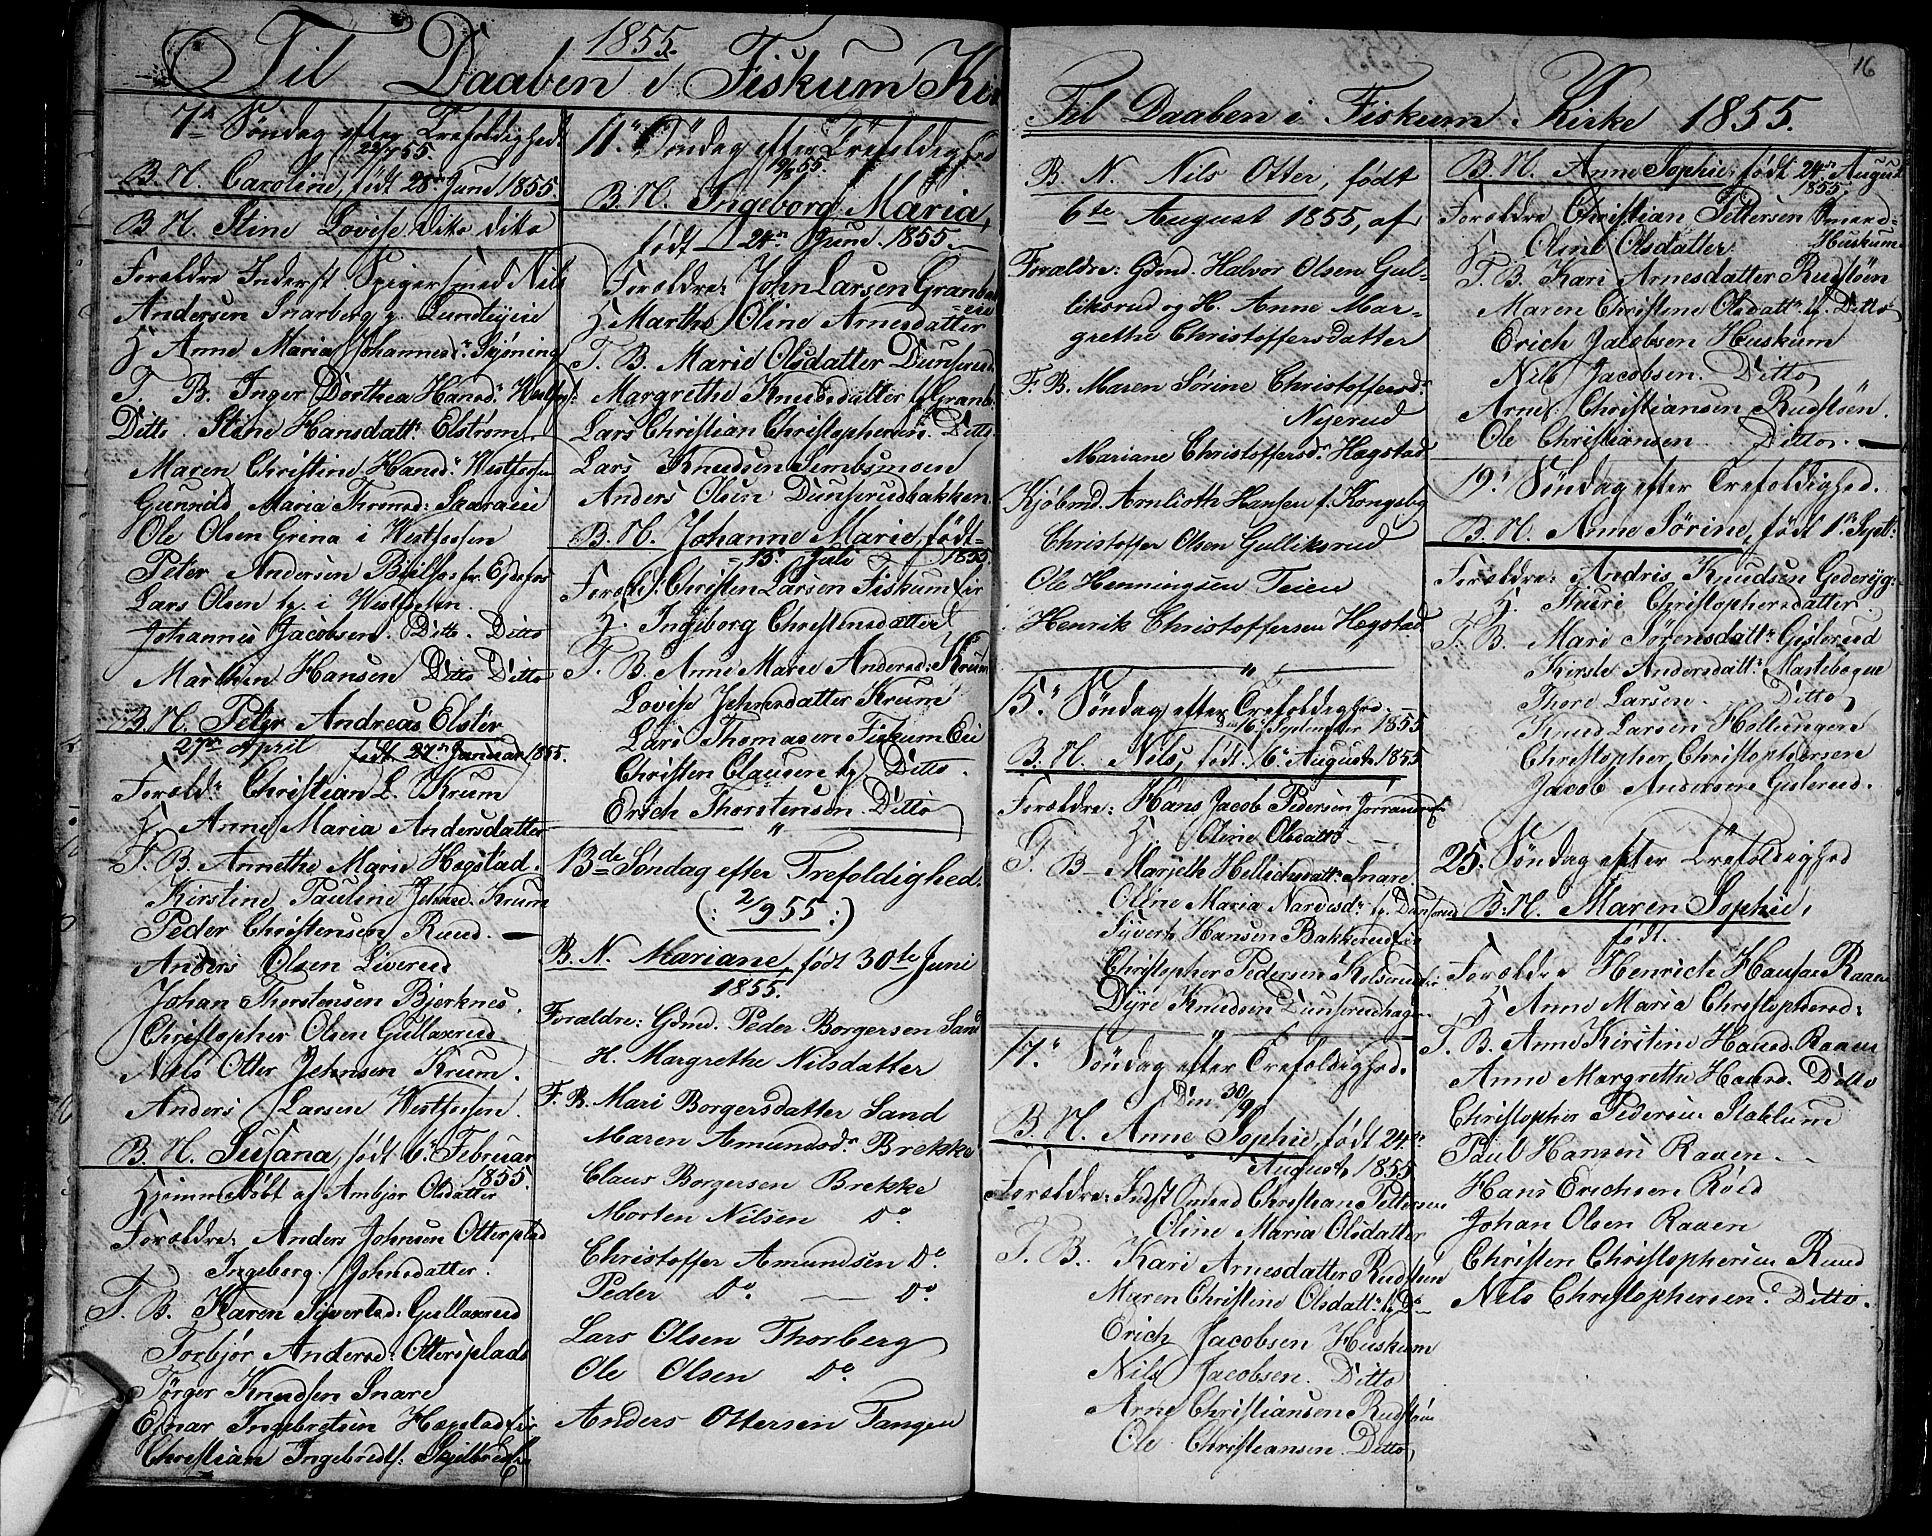 1855.
Til Daaben i Fiskum Kir
7de Søndag efter Trefoldighed.
22/7 55.
B. N. Caroline, født 28de Juni 1855.
B. N. Stine Lovise dito dito
Forældre Inderst Spigersmed Nils
Andersen Snarberg
H. Anne Maria Johannesd:
F. B. Inger Dorthea Hansd: Westfos.
Ditto. Stine Hansdattr: Elstrøm
Maren Christine Hansd: Westfossen
Gunnild Maria Thomasd:
Ole Olsen Grina i Westfossen
Peter Andersen
Lars Olsen i Westfossen.
Johannes Jacobsen. Ditto. Ditto
Marthin Hansen Ditto Ditto
B. N. Peter Andreas Elster
27de April født 27de Januar 1855.
Foræld: Christian L. Krum
H. Anne Maria Andersdatter
F. B. Annethe Marie Hogstad.
Kirstine Pauline Johnsd. Krum
Peder Christensen Ruud.
Anders Olsen Liverud
Johan Thorstensen Bjerknes.
Christopher Olsen Gullaxrud
Nils Otter Johnsen Krum.
Anders Larsen Westfossen.
B. N. Susana, født 6: Februar
1855.
Hjemmedøbt af Ambjør Olsdatter
Forældre: Anders Johnsen Ottersplad
Ingeborg Johnsdatter.
F. B. Karen Syvertsd: Gullaxrud
Torbjør Andersd: Ottersplads
Tørger Knudsen Snare
Einar Ingebretsen Hogstad
Christian Ingebredts:
11: Søndag efter Trefoldighed
19/8 55.
B. N. Ingeborg Maria,
født 24de Juni 1855.
Forældre: John Larsen Granb
eie
H. Marthe Oline Arnesdatter
F. B. Marie Olsdatter Dunserud
Margrethe Knudsdatter Granb.
Lars Christian Christophersen. Ditto.
Lars Knudsen Lembsmoen
Anders Olsen Dunserudbakken.
B. N. Johanne Marie, født
15: Juli 1855
Foræld: Christen Larsen Fiskum Eie
H. Ingeborg Christensdatter
F. B. Anne Marie Andersd: Krum
Lovise Johnsdatter Krum
Lars Thomasen Fiskum Eie
Christen Clausen Ditto.
Erich Thorstensen. Ditto
"
13de Søndag efter Trefoldighed.
(: 2/9 55 :)
B. N. Mariane født 30te Juni
1855.
Forældre: Gdmd. Peder Borgersen Sand
H. Margrethe Nilsdatter
F. B. Mari Borgersdatter Sand
Maren Amundsdr Brekke
Claus Borgersen Brekke
Morten Nilsen Do.
Christoffer Amundsen Do.
Peder Do. — Do.
Lars Olsen Thorberg
Ole Olsen Do.
Anders Ottersen Tangen
16
Til Daaben i Fiskum Kirke 1855.
B. N. Nils Otter, født
6te August 1855, af
Forældre: Gdmd. Halvor Olsen Gul-
liksrud og H. Anne Mar-
grethe Christoffersdatter
F. B. Maren Sørine Christoffersdr
Nyerud
Mariane Christoffersdr Hægstad
Kjøbmd. Arnlioth Hansen f. Kongsbg
Christoffer Olsen Gulliksrud
Ole Henningsen Teien
Henrik Christoffersen Hægstad
"
15: Søndag efter Trefoldighed.
Den 16: September 1855
B. N. Nils, født 16: August 1855
Forældre: Hans Jacob Pedersen
H. Oline Olsdattr
F. B. Marjeth Hellichsdatt: Snare
Oline Maria Dunserud
Syvert Hansen Bakkerudeie
Christopher Pedersen Kolserud
Dyre Knudsen Dunserudhagen
"
17: Søndag efter Trefoldighed.
Den 30/9
B. N. Anne Sophie, født 24de
August 1855
Forældre: Indst Smed Christian Pettersen
Oline Maria Olsdatter
F. B. Kari Arnesdatter Rudstuen
Maren Christine Olsdatt: Do
Erich Jacobsen Huskum
Nils Jacobsen. Ditto
Arne Christiansen Rudstøen
Ole Christiansen. Ditto
B. N. Anne Sophie, født 24de August
1855.
Forældre Christian Pettersen Smed
Huskum
H. Oline Olsdatter
F. B. Kari Arnesdatter Rudstøen
Maren Christine Olsdattr Ditto
Erich Jacobsen Huskum
Nils Jacobsen. Ditto
Arne Christiansen Rudstøen.
Ole Christiansen Ditto.
19: Søndag efter Trefoldighed.
B. N. Anne Sørine, født 1de Septb:
Forældre: Andris Knudsen
H. Thuri Christophersdatter.
F. B. Mari Sørensdattr Gislerud
Kirsti Andersdattr
Thore Larsen. Ditto
Knud Larsen
Christopher Christophersen
Jacob Andersen Gislerud.
25: Søndag efter Trefoldighed
B. N. Maren Sophie,
født
Forældre Henrich Hansen Raaen
H. Anne Maria Christophersd:
F. B. Anne Kirstine Hansd. Raaen
Anne Margrethe Hansd. Ditto
Christopher Pedersen Stablum
Paul Hansen Raaen.
Hans Erichsen Røed
Johan Olsen Raaen
Christen Christophersen Ruud
Nils Christophersen. Ditto.